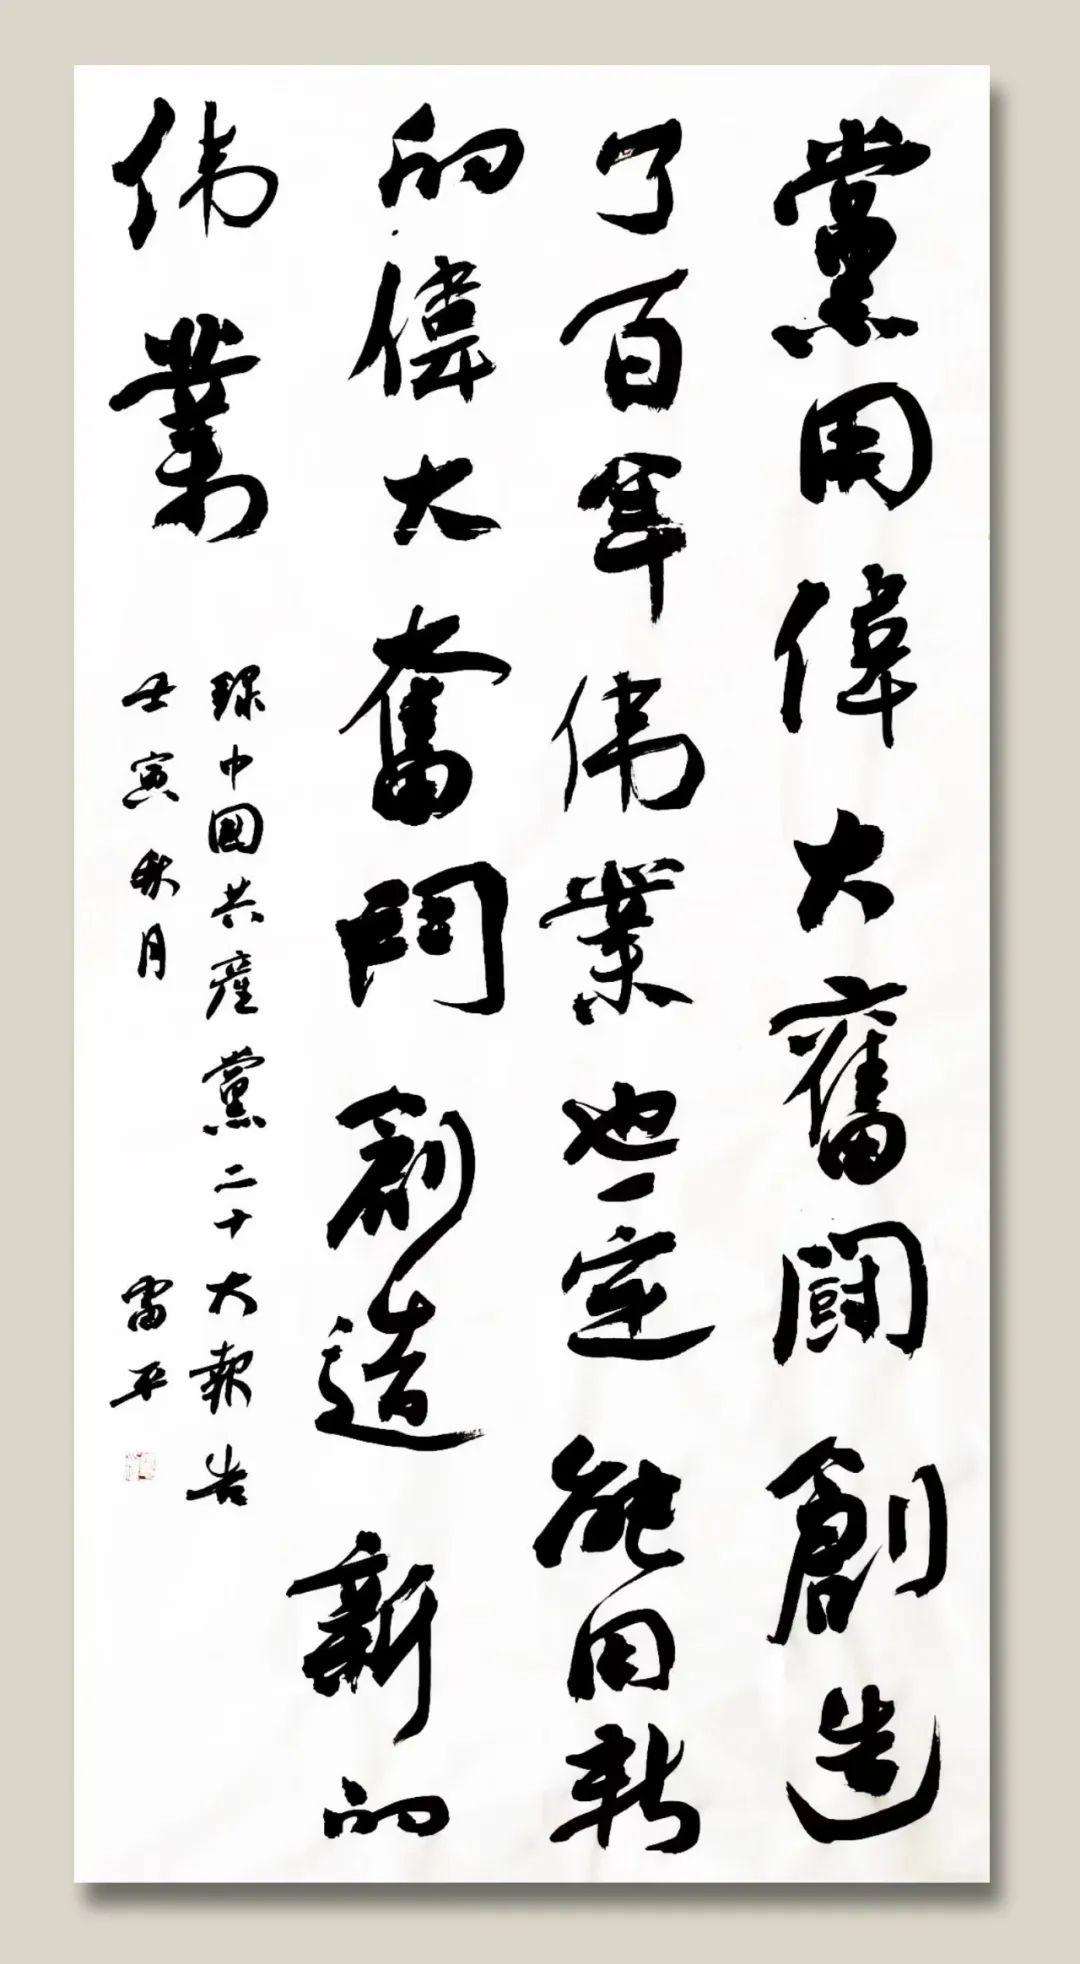 黨用偉大奮鬪創造
了百年伟業也一定能用新
的偉大奮鬥創造新的
伟業
録中國共產黨二十大報告
壬寅秋月 雷平